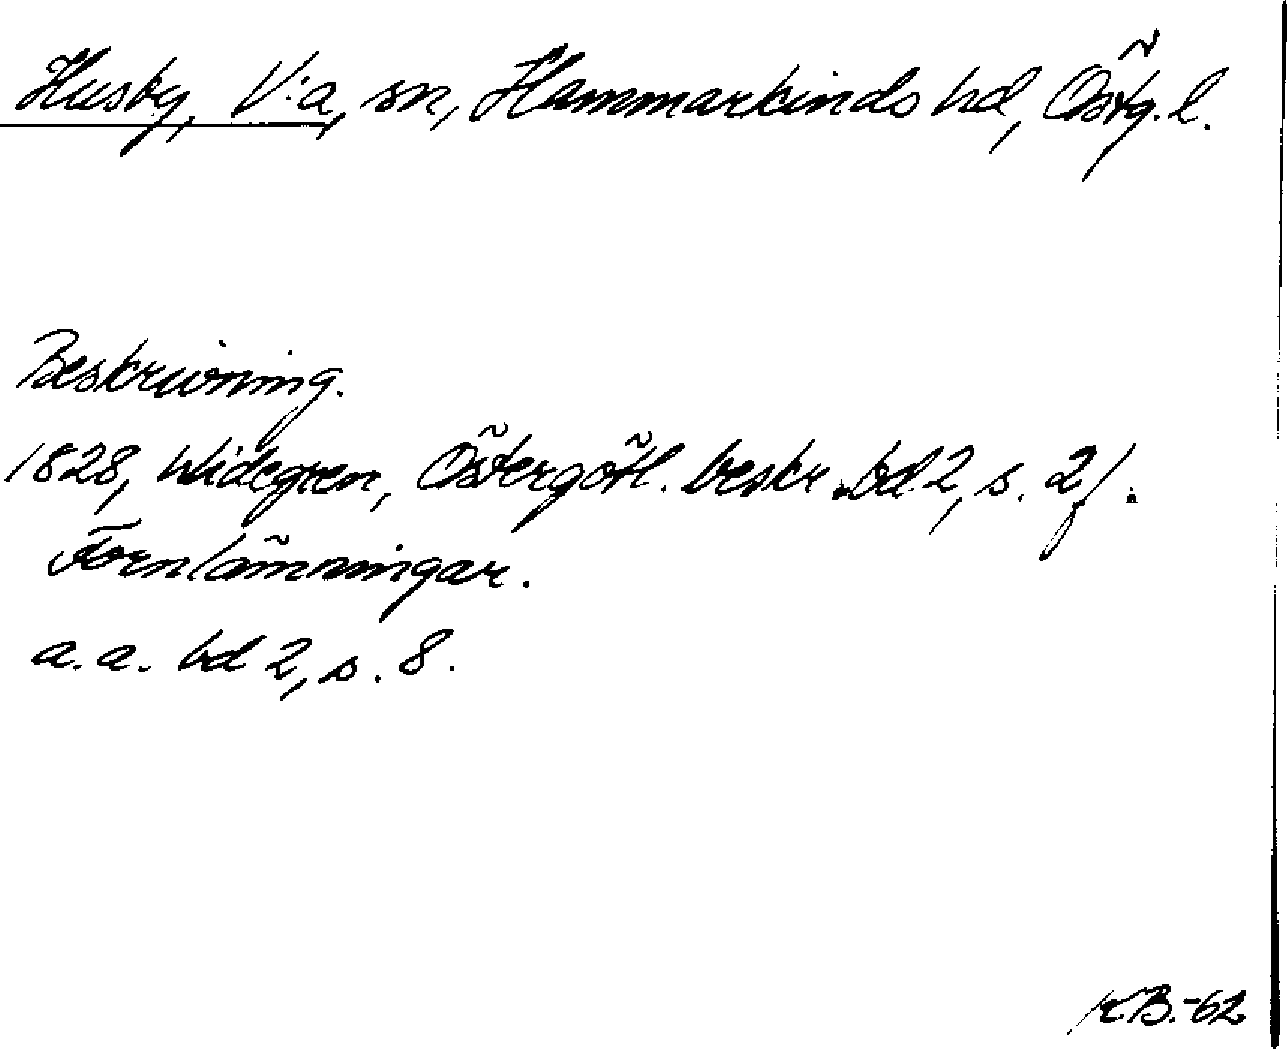 Husby, V:a, sn, Hammarkinds hd, Östg. l.
Beskrivning.
1828, Widegren, Östergötl. beskr. bd 2, s. 2f.
Fornlämningar.
a.a. bd 2, s. 8.
KB.-62